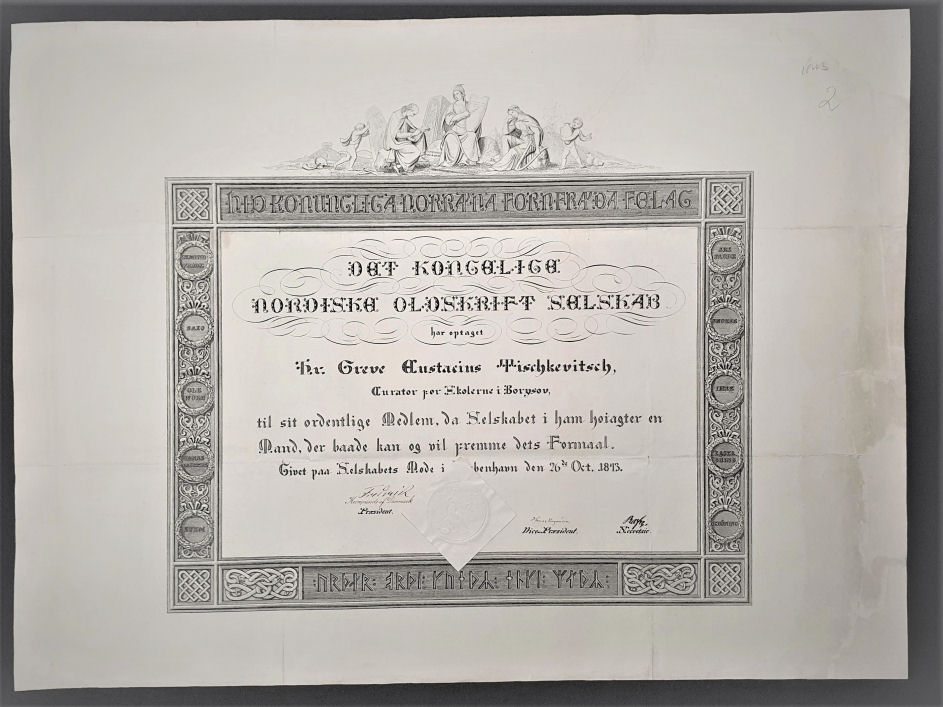 2
HID KONUNGLIGA NORRÆNA FORNFRÆÐA FELAG
DET KONGELIGE
NORDISKE OLDSKRIFT SELSKAB
har optaget
Hr. Greve Eustacius Tischkevitsch,
Curator for Skolerne i Borysov,
til sit ordentlige Medlem, da Selskabet i ham høiagter en
Mand, der baade kan og vil fremme dets Formaal.
Givet paa Selskabets Møde i benhavn den 26de Oct. 1843.
Præsident.
Vice-Præsident. Secretair.
SAXO
OLE
WORM
SNORRE
IHRE